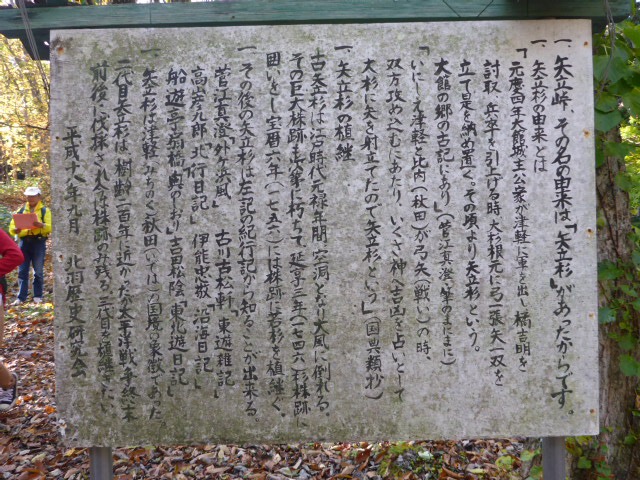 一、矢立峠、その名の由来は「矢立杉」があったからです。
一、矢立杉の由来とは
「元慶四年大館城主公家が津軽に軍を出し橘吉明を
討取、兵卒を引上げる時、大杉根元に弓一張、矢一双を
立て是を納め置く。その頃より矢立杉という。
大館の郷の古記にあり」(菅江真澄・筆のまにまに)
「いにしえ津軽と比内(秋田)が弓矢(戦い)の時、
双方攻め込むにあたり、いくさ神へ吉凶を占いとして
大杉に矢を射立てたので矢立杉という」(国典類抄)
一、矢立杉の植継
古矢立杉は江戸時代元禄年間、空洞となり大風に倒れる。
その巨大株跡も次第に朽ちて、延享三年(一七四六)杉株跡に
囲いをし、宝暦六年(一七五六)に株跡に若杉を植継ぐ。
一、その後の矢立杉は左記の紀行記から知ることが出来る。
菅江真澄「外が浜風」 古川古松軒「東遊雑記」
高山彦九郎「北行日記」 伊能忠敬「沿海日記」
船遊亭扇橋「奥のしおり」 吉田松陰「東北遊日記」
一、矢立杉は津軽(みちのく)秋田(いでは)の国境の象徴であった
二代目矢立杉は樹齢二百年に近かったが太平洋戦争終末
前後に伐採され今は株跡のみ残る。三代目を擁護したい。
平成十八年九月 北羽歴史研究会